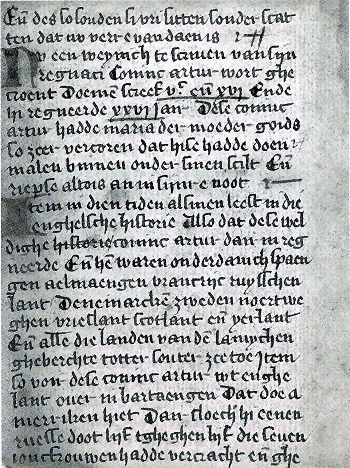 En̄ des so louden si vri sitten sonder scat
ten dat uv verre vandaen is
Nv een weynich te scriuen van sijn
regnaci Coninc artur wort ghe
croent Doemē screef vᶜ en̄ xvi Ende
hi regneerde xxvi jaer Dese coninc
artur hadde maria der moeder gods
so zeer vercoren dat hise hadde doen
malen binnen onder sinen scilt En̄
riepse altois an in sijnre noot
Item in dien tiden alsmen leest in die
enghelsche historie Also dat dese wel
dighe historie coninc artur dan in reg
neerde En̄ hē waren onderdanich spaen
gen aelmaengen vrancrijc ruysschen
lant Denemarchen zweden noertwe
ghen vrieslant scotlant en̄ yerlant
En̄ alle die landen vandē lamychen
gheberchte totter souter zee toe Item
so von dese coninc artur wt enghe
lant ouer in bartaengen Dat doe a
merriken hiet Dair sloech hi eenen
ruese doot lijf tgheghen lijf die seuen
joncfrouwen hadde vercracht en̄ ghe